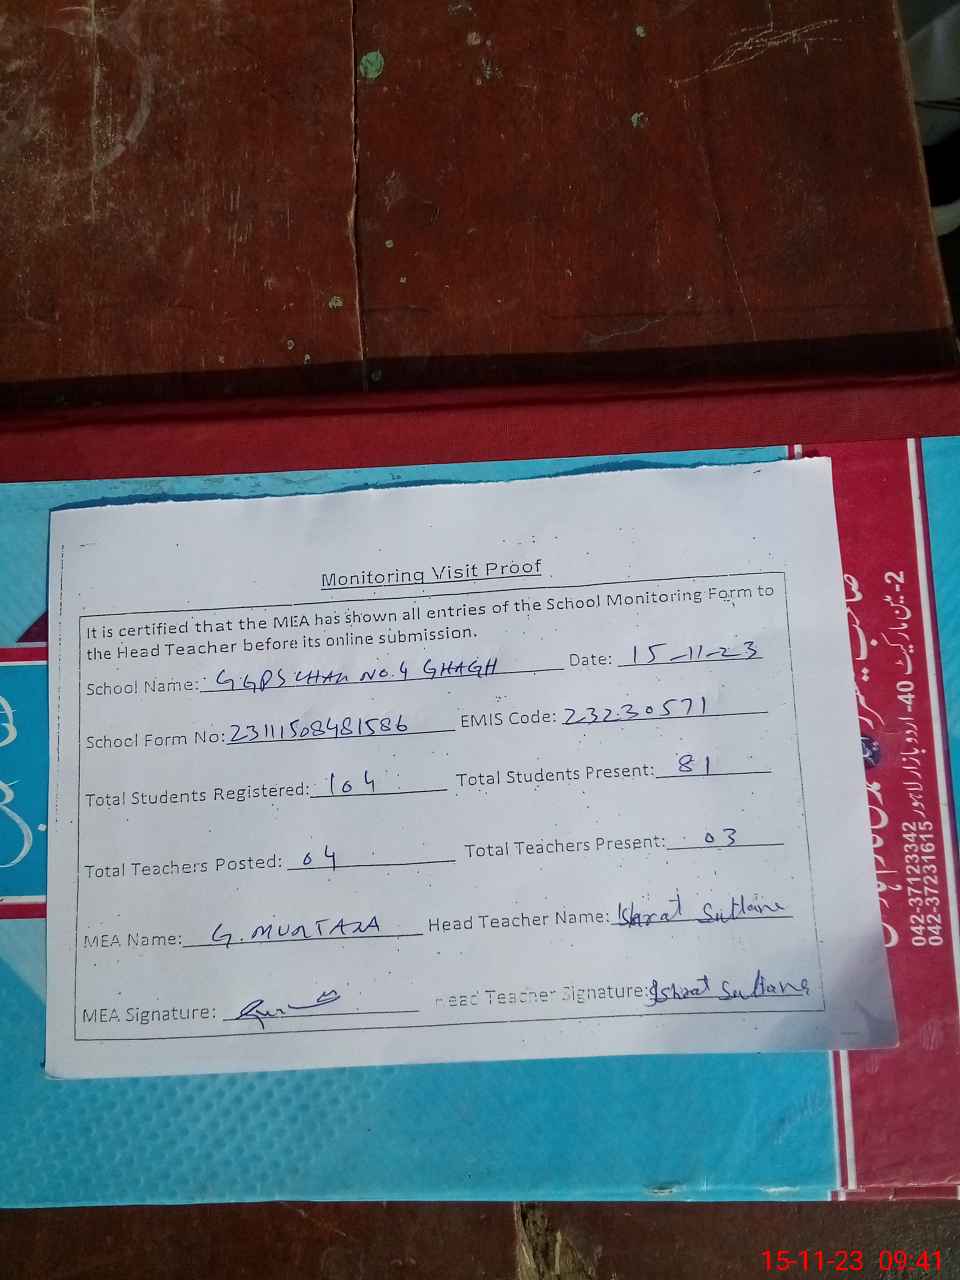 Monitoring Visit Proof
It is certified that the MEA has shown all entries of the School Monitoring Form to
the Head Teacher before its online submission.
School Name: GGPS CHAK NO. 4 GHAGH Date: 15-11-23
School Form No: 23111508481586 EMIS Code: 23230571
Total Students Registered: 104 Total Students Present: 81
Total Teachers Posted: 04 Total Teachers Present: 03
MEA Name: G. MURTAZA Head Teacher Name: Ishrat Sultana
MEA Signature: Head Teacher Signature: Ishrat Sultana
2-مین مارکیٹ 40-اردو بازار لاہور
042-37123342
042-37231615
15-11-23 09:41